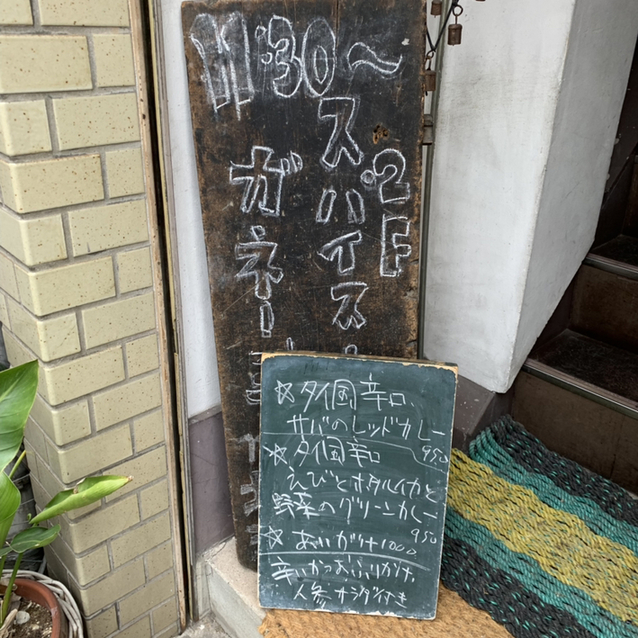 11:30〜
2F
スパイス
ガネー
☆タイ国 辛口、
サバのレッドカレー
950
☆タイ国 辛口
えびとホタルイカと
野菜のグリーンカレー
950
☆あいがけ 1000
辛いかつおふりかけ、
人参サラダ付き